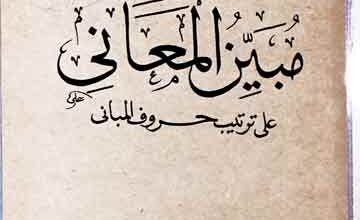 مُبَيِّنُ الْمَعَانِي
على ترتيب حروف المباني